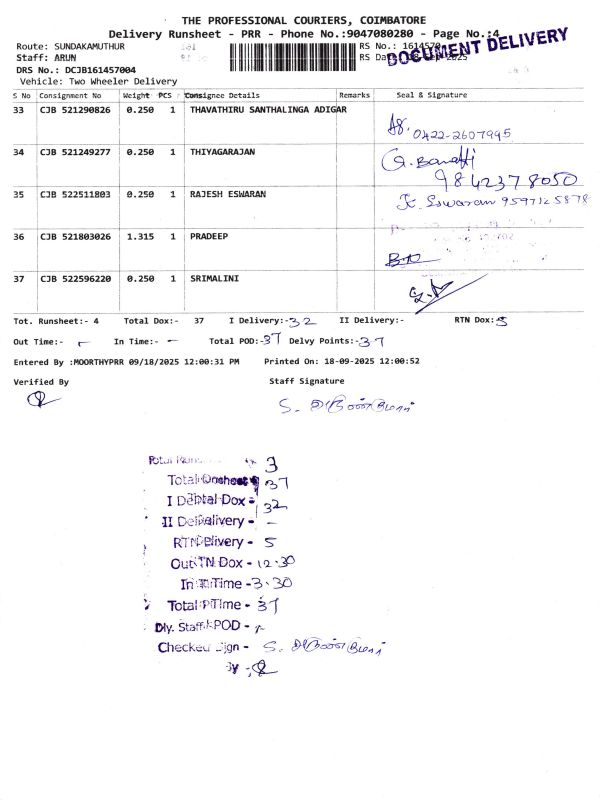 THE PROFESSIONAL COURIERS, COIMBATORE
Delivery Runsheet - PRR - Phone No.:9047080280 - Page No.:4
Route: SUNDAKAMUTHUR RS No.: 1614570
Staff: ARUN RS Date: 18-Sep-2025
DOCUMENT DELIVERY
DRS No.: DCJB161457004
Vehicle: Two Wheeler Delivery
S No Consignment No Weight PCS Consignee Details Remarks Seal & Signature
33 CJB 521290826 0.250 1 THAVATHIRU SANTHALINGA ADIGAR
0422-2607995
34 CJB 521249277 0.250 1 THIYAGARAJAN
9842378050
35 CJB 522511803 0.250 1 RAJESH ESWARAN
Eswaran 9597125878
36 CJB 521803026 1.315 1 PRADEEP
37 CJB 522596220 0.250 1 SRIMALINI
Tot. Runsheet:- 4 Total Dox:- 37 I Delivery:-32 II Delivery:- RTN Dox:5
Out Time:- - In Time:- - Total POD:-37 Delvy Points:-37
Entered By :MOORTHYPRR 09/18/2025 12:00:31 PM Printed On: 18-09-2025 12:00:52
Verified By Staff Signature
S. அருண்குமார்
3
37
32
-
5
12.30
In Time -3.30
37
S. அருண்குமார்